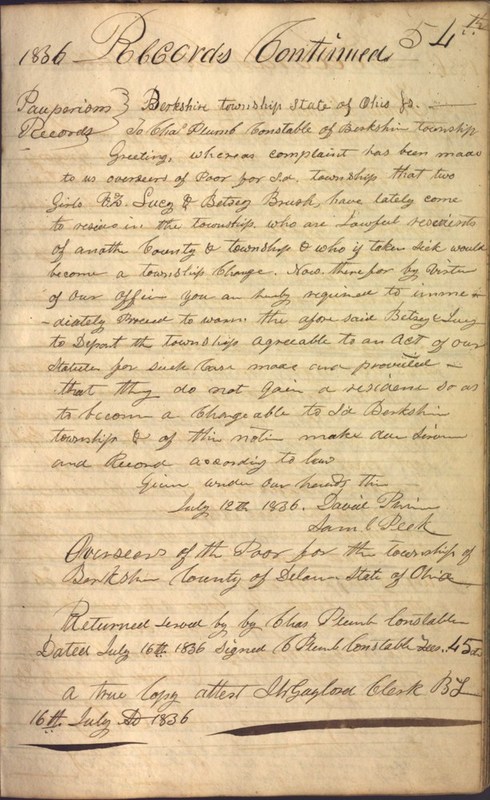 1836 Records Continued 54th
Pauperism } Berkshire township State of Ohio Ss.
Records } To Chas Plumb Constable of Berkshire township
Greeting, whereas complaint has been made
to us overseers of Poor for Sd. township that two
Girls Viz. Lucy & Betsey Brush, have lately come
to reside in the township, who are Lawful residents
of anothe County & township & who if taken Sick would
become a township Charge. Now therefor by Virtue
of our office you are hereby required to imme
-diately Proceed to warn the afore said Betsey & Lucy
to Depart th township agreable to an Act of our
Statute for such Case made and provided -
that they do not gain a residence so as
to become a Chargeable to Sd Berkshire
township & of this notice make due
and Record according to law
Given under our hands this
July 12th 1836. David
Saml Peek
Overseers of th Poor for the township of
Berkshire County of Delaware State of Ohio
Returned served by by Chas Plumb Constable
Dated July 16th 1836 Signed C Plumb Constable Fees. 45cts
a true Copy attest Gaylord Clerk BT
16th July AD 1836